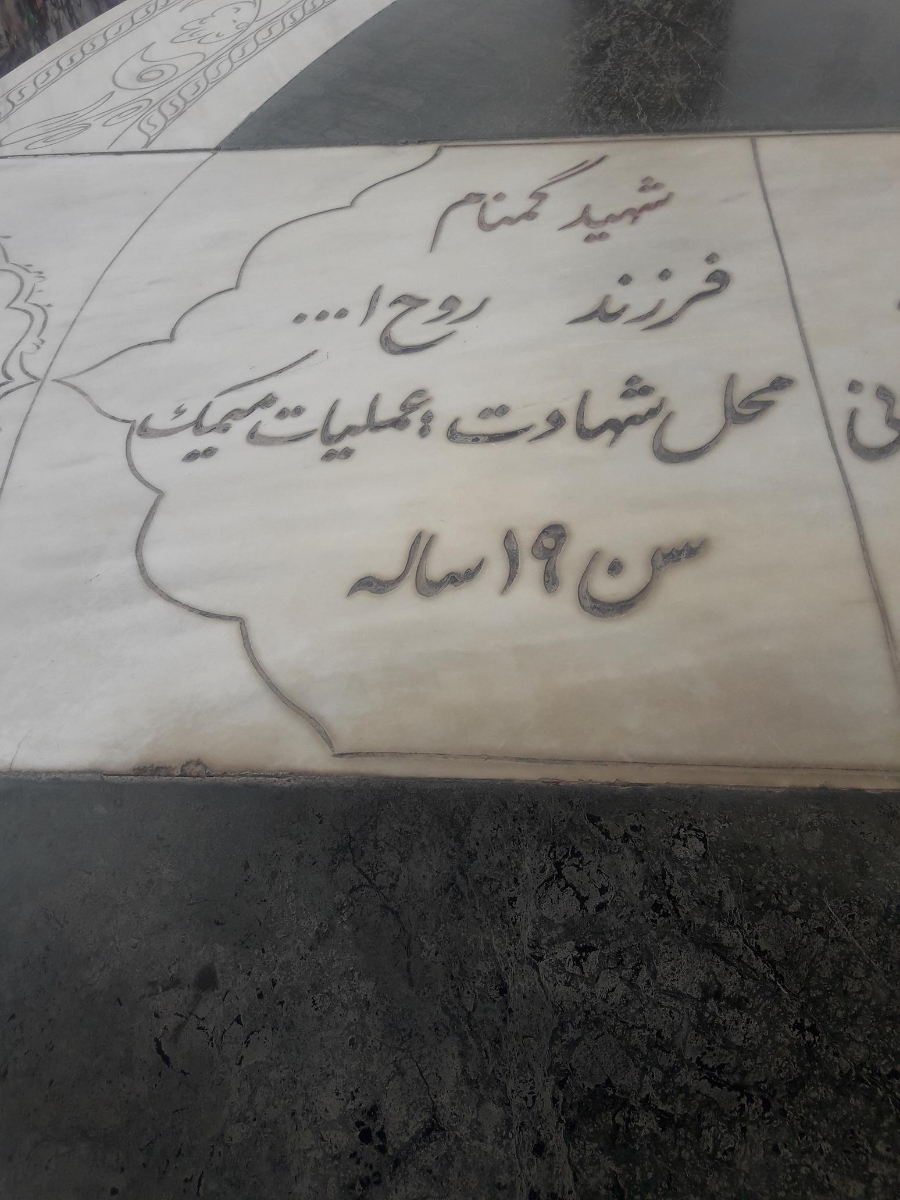 شهید گمنام
فرزند روح ا...
محل شهادت : عملیات میمک
سن ۱۹ ساله